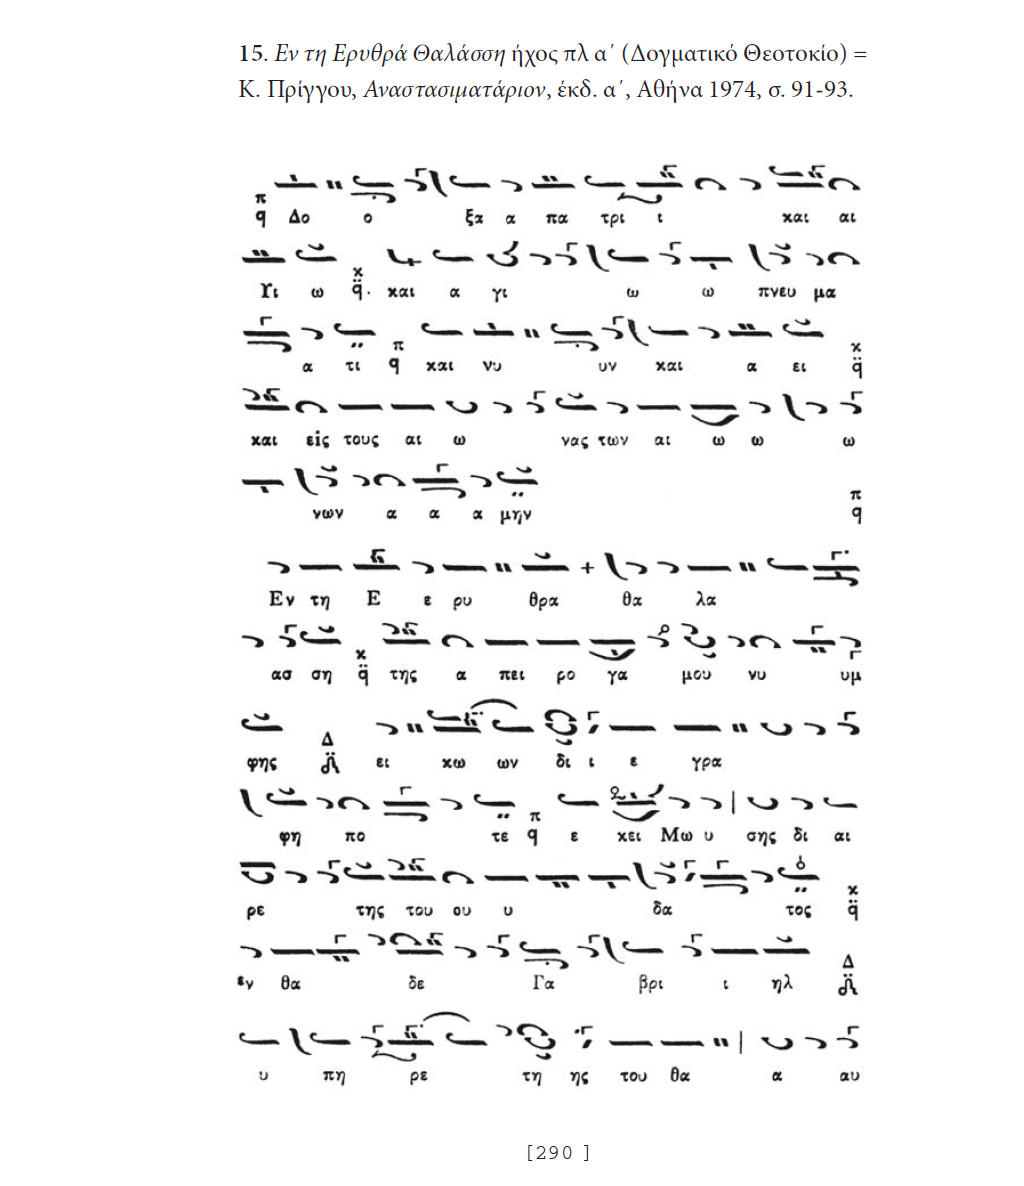 15. Εν τη Ερυθρά Θαλάσση ήχος πλ α΄ (Δογματικό Θεοτοκίο) =
Κ. Πρίγγου, Αναστασιματάριον, έκδ. α΄, Αθήνα 1974, σ. 91-93.
π
q Δο ο ξα α πα τρι ι και αι
Υι ω και α γι ω ω πνευ μα
α τι και νυ υν και α ει
και εἰς τους αι ω νας των αι ω ω ω
νων α α α μην
Εν τη Ε ε ρυ θρα θα λα
ασ ση της α πει ρο γα μου νυ υμ
φης ει κω ων δι ι ε γρα
φη πο τε ε κει Μω υ σης δι αι
ρε της του ου υ δα τος
εν θα δε Γα βρι ι ηλ
υ πη ρε τη ης του θα α αυ
[290 ]